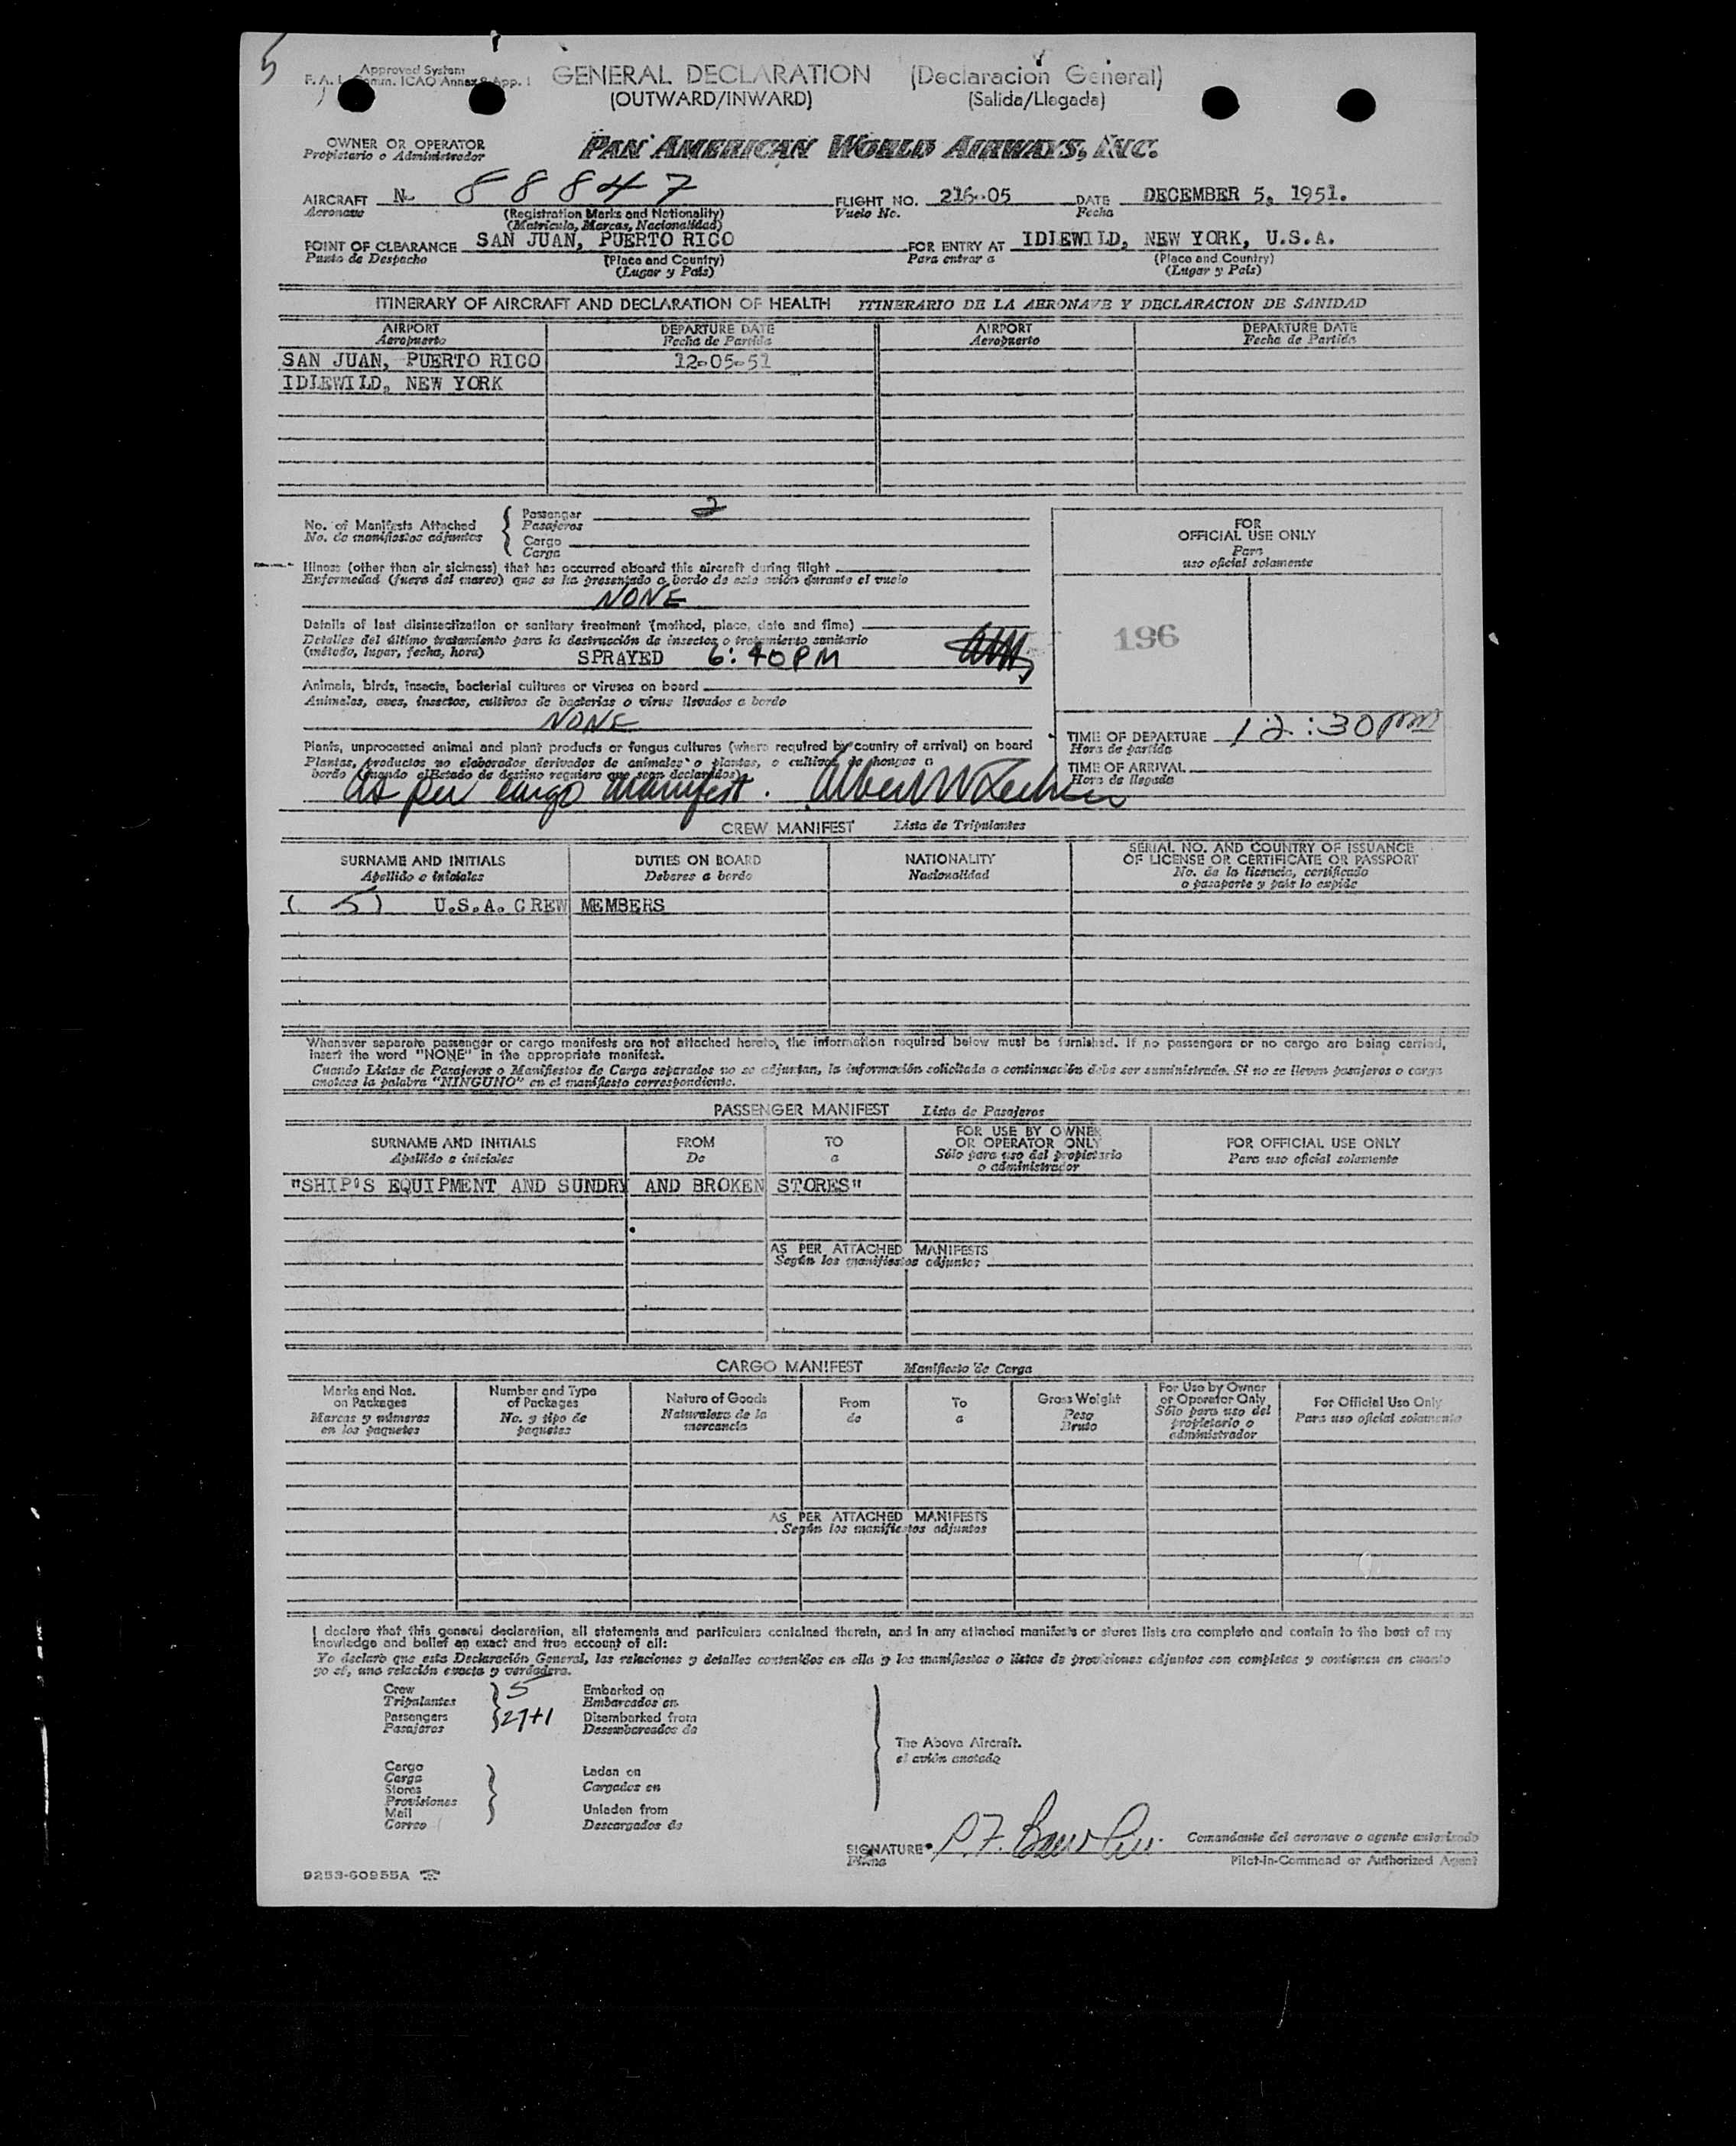 5
Approved System
GENERAL DECLARATION (Declaración General)
(OUTWARD/INWARD) (Salida/Llegada)
OWNER OR OPERATOR
Propietario o Administrador
PAN AMERICAN WORLD AIRWAYS, INC.
AIRCRAFT N 88847 FLIGHT NO. 216-05 DATE DECEMBER 5, 1951.
Aeronave (Registration Marks and Nationality) Vuelo No. Fecha
(Matricula, Marcas, Nacionalidad)
POINT OF CLEARANCE SAN JUAN, PUERTO RICO FOR ENTRY AT IDLEWILD, NEW YORK, U.S.A.
Punto de Despacho (Place and Country) Para entrar a (Place and Country)
(Lugar y País) (Lugar y País)
ITINERARY OF AIRCRAFT AND DECLARATION OF HEALTH ITINERARIO DE LA AERONAVE Y DECLARACION DE SANIDAD
AIRPORT DEPARTURE DATE AIRPORT DEPARTURE DATE
Aeropuerto Fecha de Partida Aeropuerto Fecha de Partida
SAN JUAN, PUERTO RICO 12-05-51
IDLEWILD, NEW YORK
No. of Manifests Attached
No. de manifiestos adjuntos
Passenger 2
Pasajeros
Cargo
Carga
FOR
OFFICIAL USE ONLY
Para
uso oficial solamente
196
Illness (other than air sickness) that has occurred aboard this aircraft during flight
Enfermedad (fuera del mareo) que se ha presentado a bordo de este avión durante el vuelo
NONE
Details of last disinsectization or sanitary treatment (method, place, date and time)
Detalles del último tratamiento para la destrucción de insectos o tratamiento sanitario
(método, lugar, fecha, hora) SPRAYED 6:40 PM
Animals, birds, insects, bacterial cultures or viruses on board
Animales, aves, insectos, cultivos de bacterias o virus llevados a bordo
NONE
TIME OF DEPARTURE 12:30 PM
Hora de partida
TIME OF ARRIVAL
Hora de llegada
Plants, unprocessed animal and plant products or fungus cultures (where required by country of arrival) on board
Plantas, productos no elaborados derivados de animales o plantas, o cultivos de hongos a
bordo (cuando el Estado de destino requiere que sean declarados)
As per cargo manifest.
CREW MANIFEST Lista de Tripulantes
SURNAME AND INITIALS DUTIES ON BOARD NATIONALITY SERIAL NO. AND COUNTRY OF ISSUANCE
OF LICENSE OR CERTIFICATE OR PASSPORT
Apellido e iniciales Deberes a bordo Nacionalidad No. de la licencia, certificado
o pasaporte y país lo expide
( 5 ) U.S.A. CREW MEMBERS
Whenever separate passenger or cargo manifests are not attached hereto, the information required below must be furnished. If no passengers or no cargo are being carried,
insert the word "NONE" in the appropriate manifest.
Cuando Listas de Pasajeros o Manifiestos de Carga separados no se adjuntan, la información solicitada a continuación debe ser suministrada. Si no se lleven pasajeros o carga
anotese la palabra "NINGUNO" en el manifiesto correspondiente.
PASSENGER MANIFEST Lista de Pasajeros
SURNAME AND INITIALS FROM TO FOR USE BY OWNER
OR OPERATOR ONLY FOR OFFICIAL USE ONLY
Apellido e iniciales De a Sólo para uso del propietario
o administrador Para uso oficial solamente
"SHIP'S EQUIPMENT AND SUNDRY AND BROKEN STORES"
AS PER ATTACHED MANIFESTS
Según los manifiestos adjuntos
CARGO MANIFEST Manifiesto de Carga
Marks and Nos.
on Packages
Marcas y números
en los paquetes
Number and Type
of Packages
No. y tipo de
paquetes
Nature of Goods
Naturaleza de la
mercancía
From
de
To
a
Gross Weight
Peso
Bruto
For Use by Owner
or Operator Only
Sólo para uso del
propietario o
administrador
For Official Use Only
Para uso oficial solamente
AS PER ATTACHED MANIFESTS
Según los manifiestos adjuntos
I declare that this general declaration, all statements and particulars contained therein, and in any attached manifests or stores lists are complete and contain to the best of my
knowledge and belief an exact and true account of all:
Yo declaro que esta Declaración General, las relaciones y detalles contenidos en ella y los manifiestos o listas de provisiones adjuntos son completos y contienen en cuanto
yo sé, una relación exacta y verdadera.
Crew 5 Embarked on
Tripulantes Embarcados en
Passengers 27+1 Disembarked from
Pasajeros Desembarcados de
The Above Aircraft.
el avión anotado
Cargo Laden on
Carga Cargados en
Stores
Provisiones
Mail Unladen from
Correo Descargados de
SIGNATURE
Firma
Comandante del aeronave o agente autorizado
Pilot-in-Command or Authorized Agent
9253-60955A